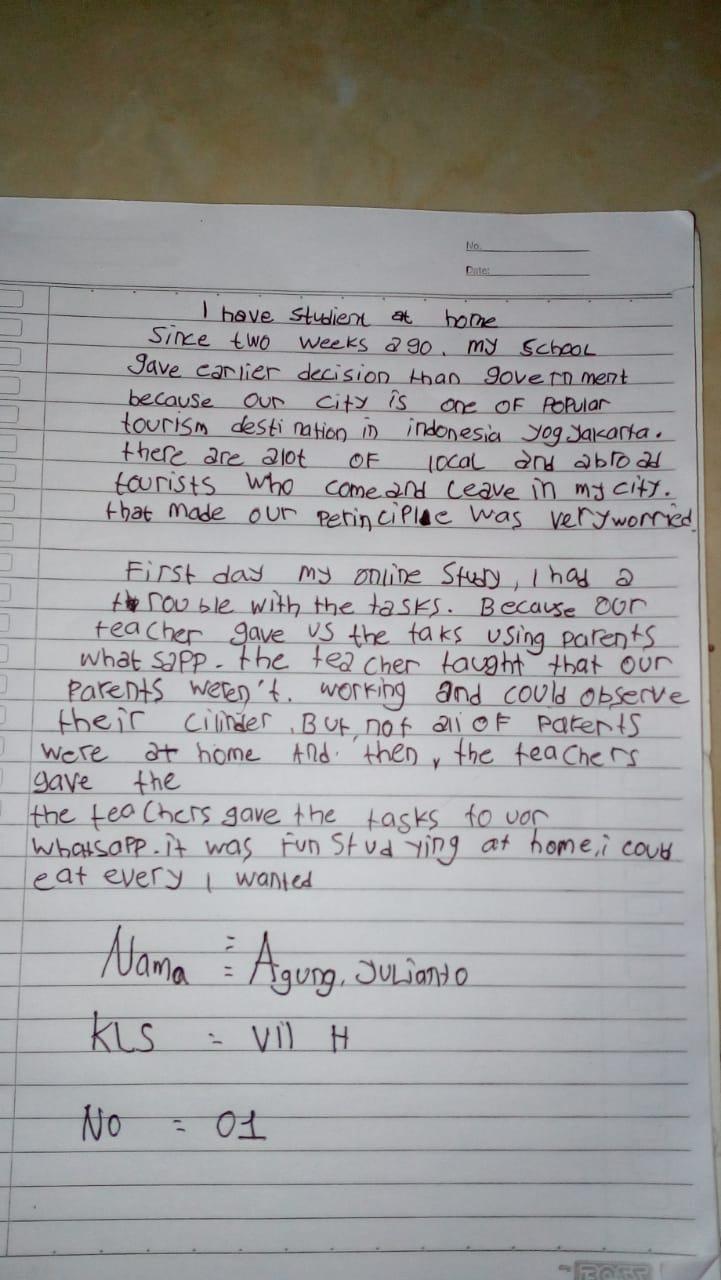 No.
Date:
I have studient at home
Since two weeks ago. my school
gave earlier decision than government
because our city is one of Popular
tourism destination in indonesia yogyakarta.
there are alot of local and abroad
tourists who come and leave in my city.
that made our perinciplae was very worried.
First day my online Study, I had a
trouble with the tasks. Because our
teacher gave us the taks using parents
whatsapp. the teacher taught that our
parents weren't. working and could observe
their cilinder. But, not all of parents
were at home And. then, the teachers
gave the
the teachers gave the tasks to uor
whatsapp. it was fun studying at home, i could
eat every I wanted
Nama = Agung. Julianto
KLS = VII H
No = 01